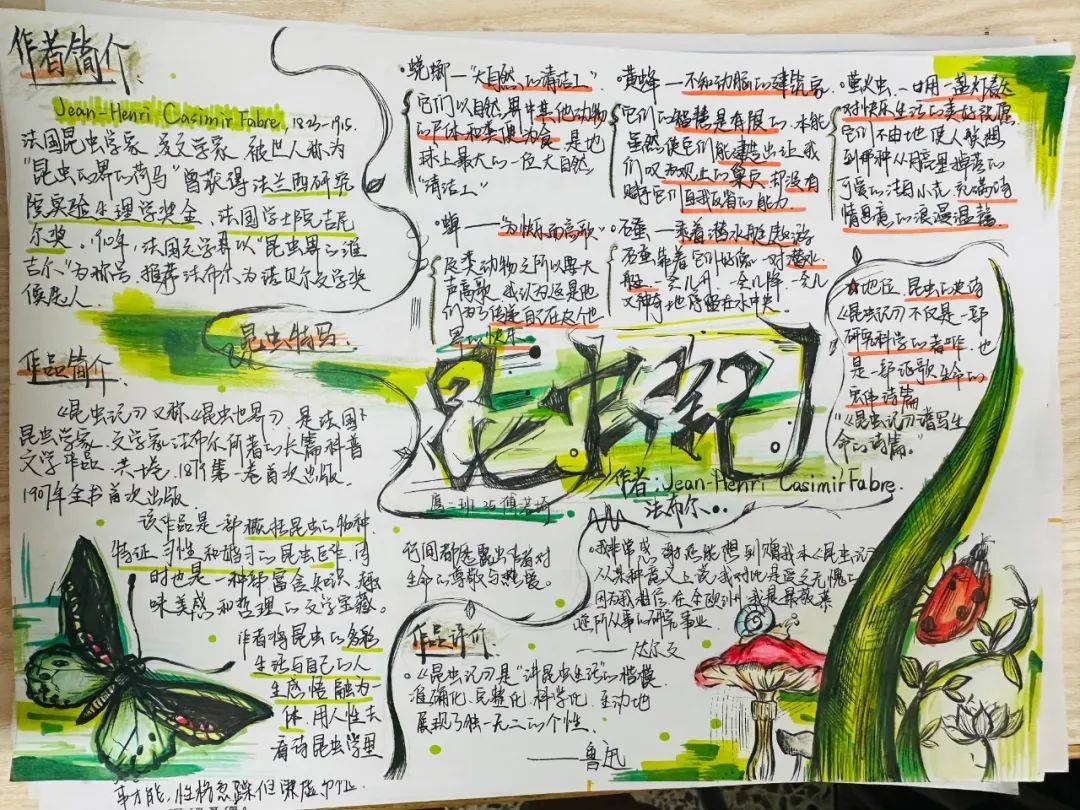 作者简介
Jean-Henri Casimir Fabre, 1823-1915.
法国昆虫学家 文学家 被世人称为
"昆虫的界的荷马"曾获得法兰西研究
院实验生理学奖金、法国学士院吉尼
尔奖。1910年,法国文学界以"昆虫界的维
吉尔"为称号,推荐法布尔为诺贝尔文学奖
候选人.
作品简介
《昆虫记》又称《昆虫世界》 是法国
昆虫学家、文学家法布尔所著的长篇科普
文学作品 共十卷,1879第一卷首次出版.
1907年全书首次出版
该作品是一部概括昆虫的物种、
特征、习性和婚习的昆虫巨作,同
时也是一种部富含知识、趣
味美感和哲理的文学宝藏。
作者将昆虫的多彩
生活与自己的人
生感悟融为一
体.用人性去
看待昆虫
昆虫特写
·蜣螂—"大自然的清洁工"
它们以自然界中其他动物
的尸体和粪便为食 是地
球上最大的一位大自然
"清洁工"
·蝉—"为快乐而高歌"
这类动物之所以要大
声高歌 我认为这是他
们为了传递自己在这个世
界的快乐
·黄蜂—不知动脑的建筑家
它们的智慧是有限的.本能
虽然使它们能建造出让我
们叹为观止的巢穴 却没有
赐予它们自我反省的能力
·石蚕—乘着潜水艇遨游
一会儿升、一会儿降、一会儿
又神奇地停留在水中央
·萤火虫—用一盏灯表达
对快乐生活的美好祝愿
它们不由地使人联想
到那种从月亮里掉落的
可爱的洁白小光 充满诗
情画意的浪漫温馨
☆地位 昆虫的史诗
《昆虫记》不仅是一部
研究科学的著作 也
是一部讴歌生命的
宏伟诗篇
"《昆虫记》谱写生
命的诗篇。"
昆虫记
作者:Jean-Henri Casimir Fabre.
法布尔··
行间都透露出作者对
生命的尊敬与热爱。
作品评价
。《昆虫记》是"讲昆虫生活"的楷模
准确化、完整化、科学化、生动地
展现了独一无二的个性.
——鲁迅
·非常感谢您能想到赠我本《昆虫记》
从某种意义上说,我对此是受之无愧的
因为我相信在全欧洲 我是最欣羡
您所从事的研究事业
——达尔文